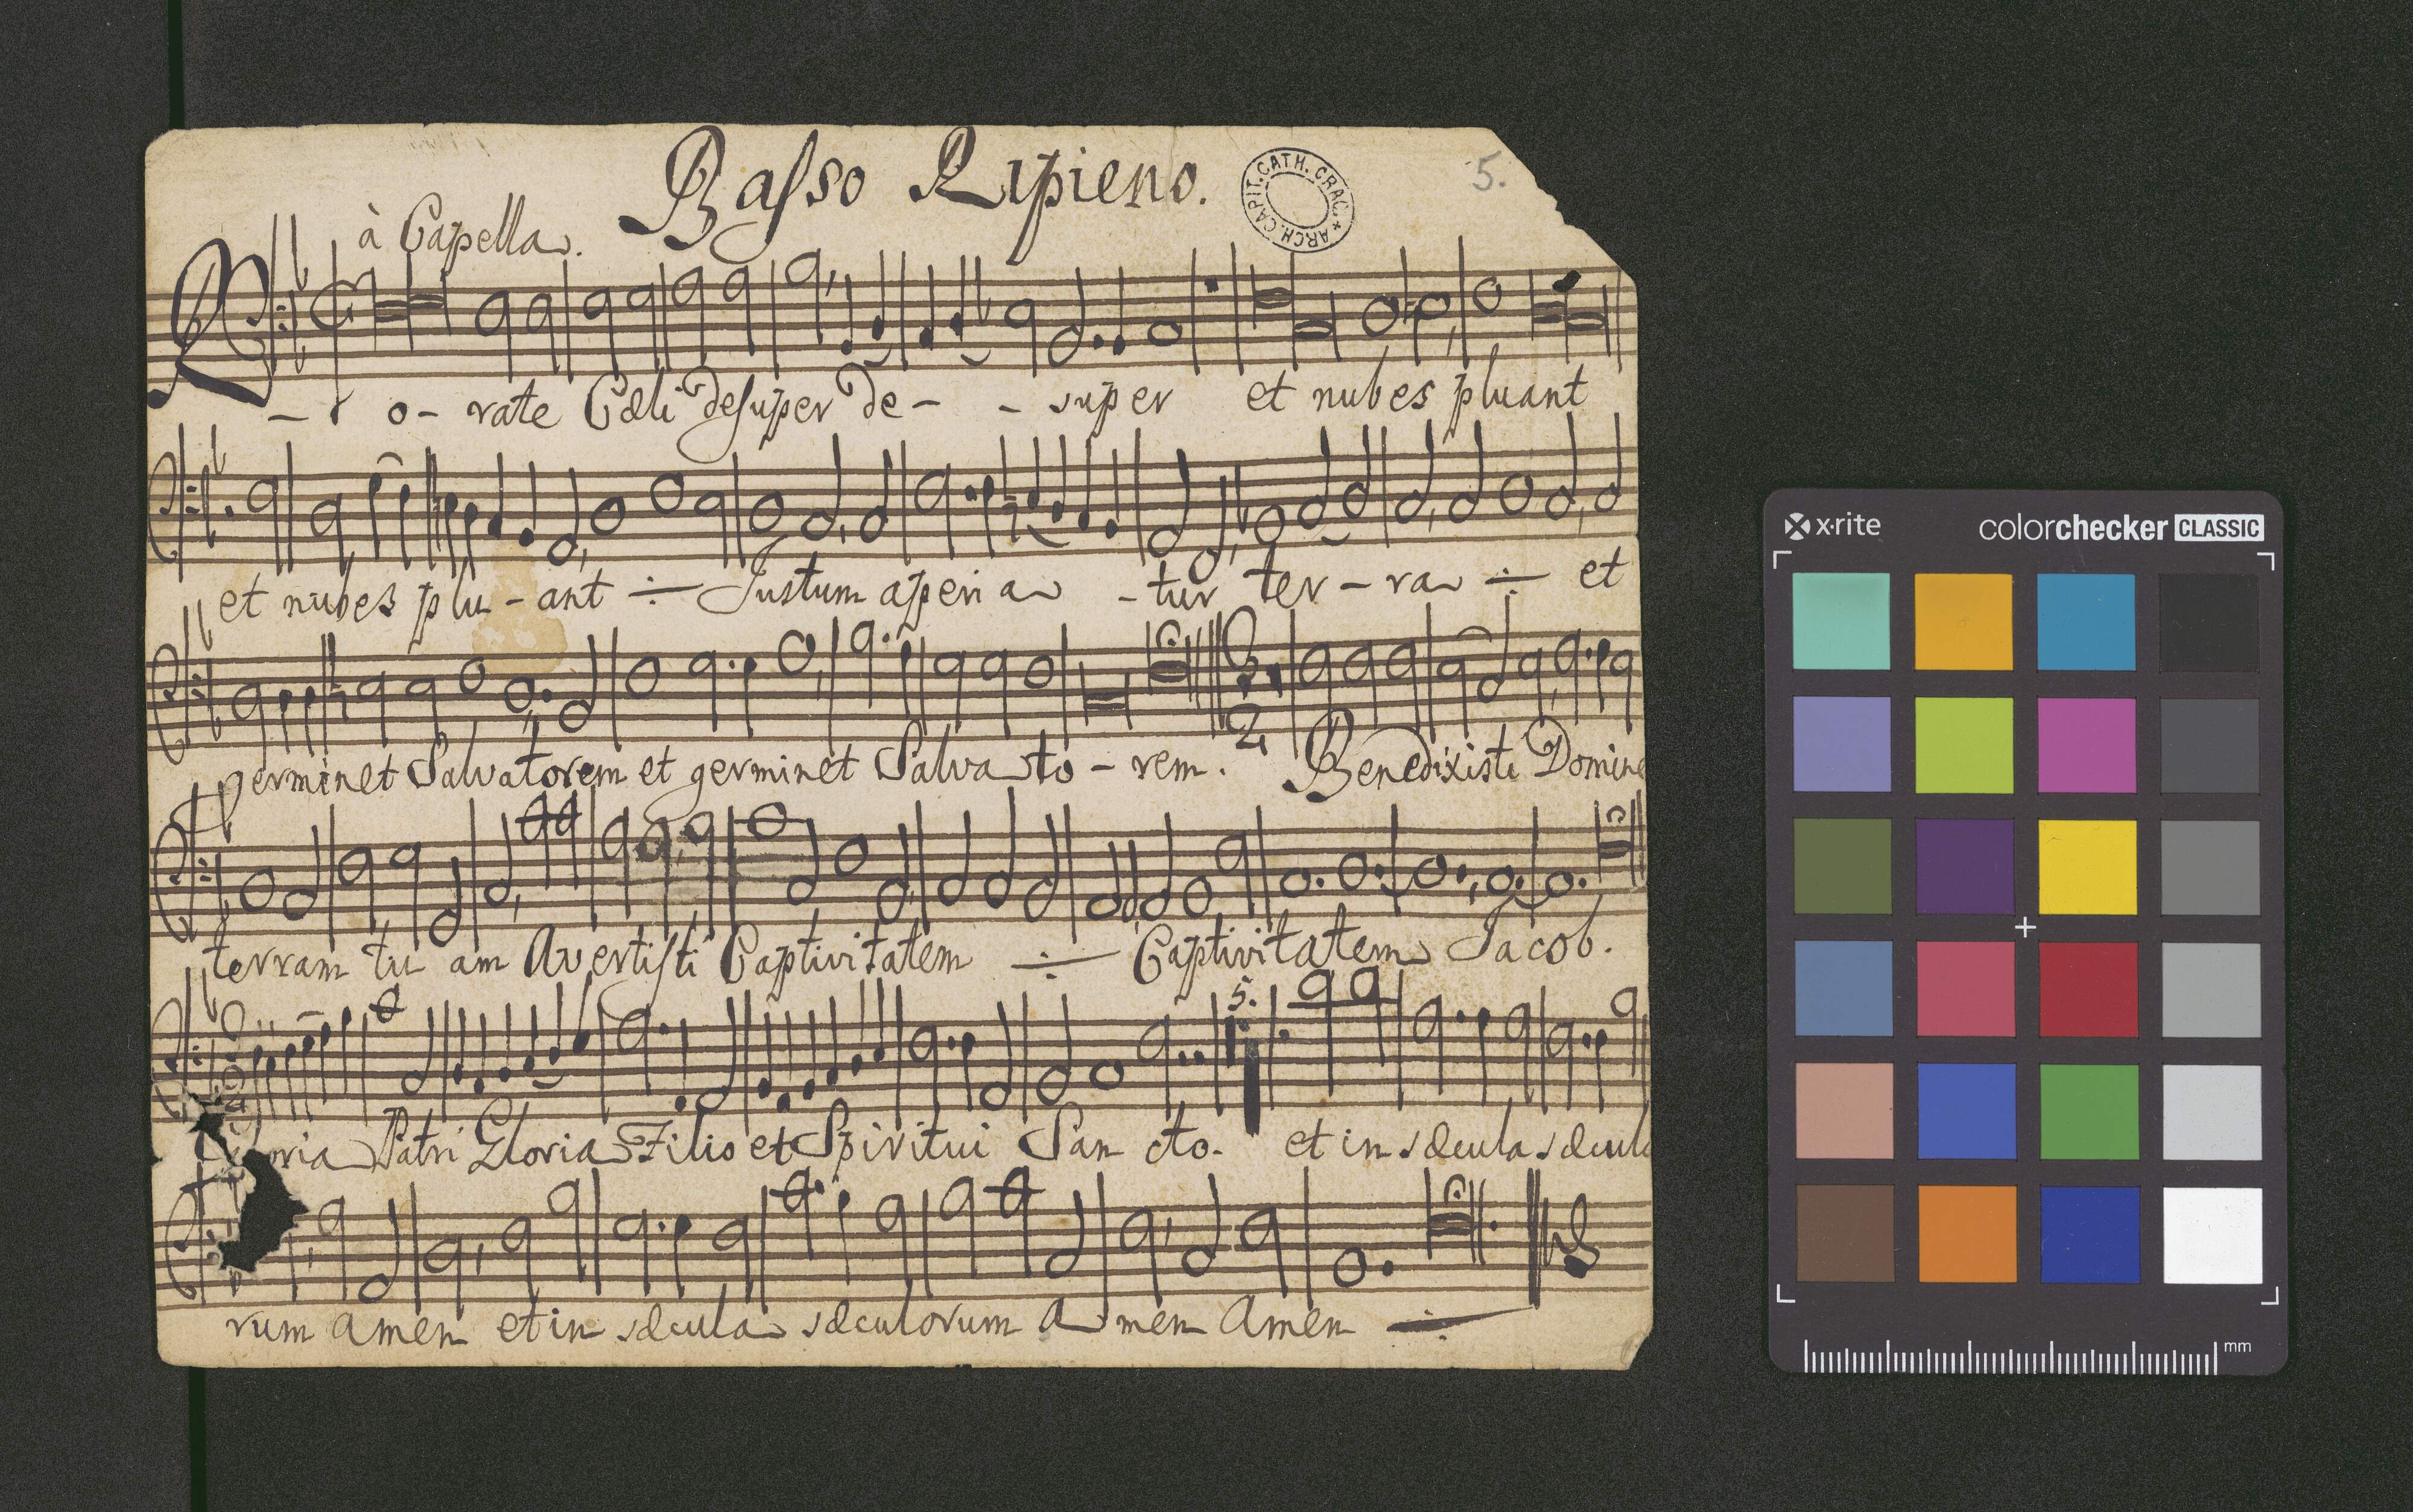 Basso Ripieno.
ARCH. CAPIT. CATH. CRAC.
5.
à Capella.
R - o - rate Cæli desuper de - - super et nubes pluant
et nubes plu - ant ÷ Justum aperia - tur ter - ra ÷ et
germinet Salvatorem et germinet Salvato - rem. Benedixisti Domine
3
2
terram tu am Avertisti Captivitatem ÷ Captivitatem Jacob.
5.
Patri Gloria Filio et Spiritui San cto. et in sæcula sæcula
rum amen et in sæcula sæculorum A men Amen ÷
x·rite
colorchecker CLASSIC
mm